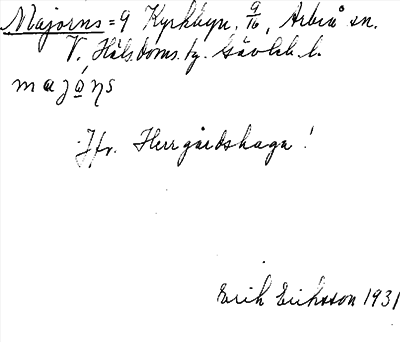 Majorns = 9 Kyrkbyn, 9/16, Arbrå sn.
V. Hälsdoms. tg. Gävleb. l.
majo̱ṇs
Jfr. Herrgårdshaga!
Erik Eriksson 1931